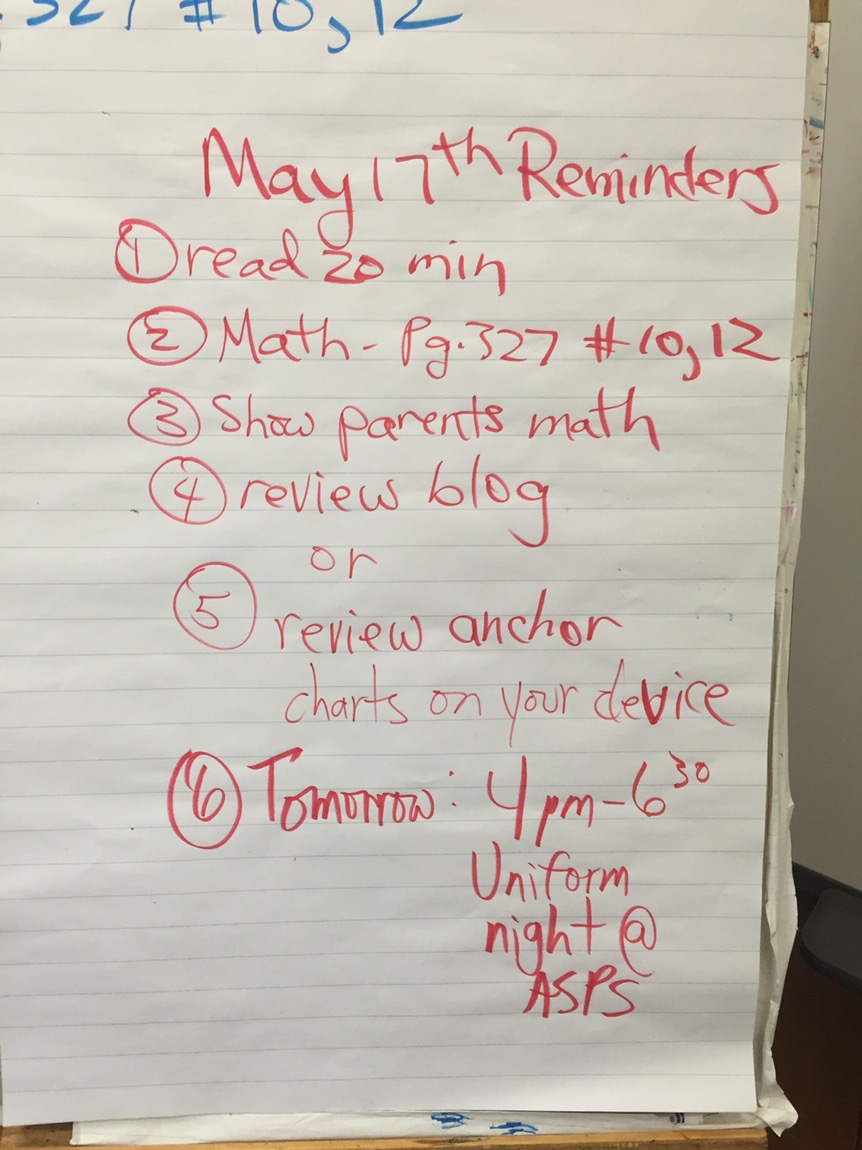 327 #10, 12
May 17th Reminders
① read 20 min
② Math - Pg. 327 #10, 12
③ Show parents math
④ review blog
or
⑤ review anchor
charts on your device
⑥ Tomorrow: 4pm - 6³⁰
Uniform
night @
ASPS